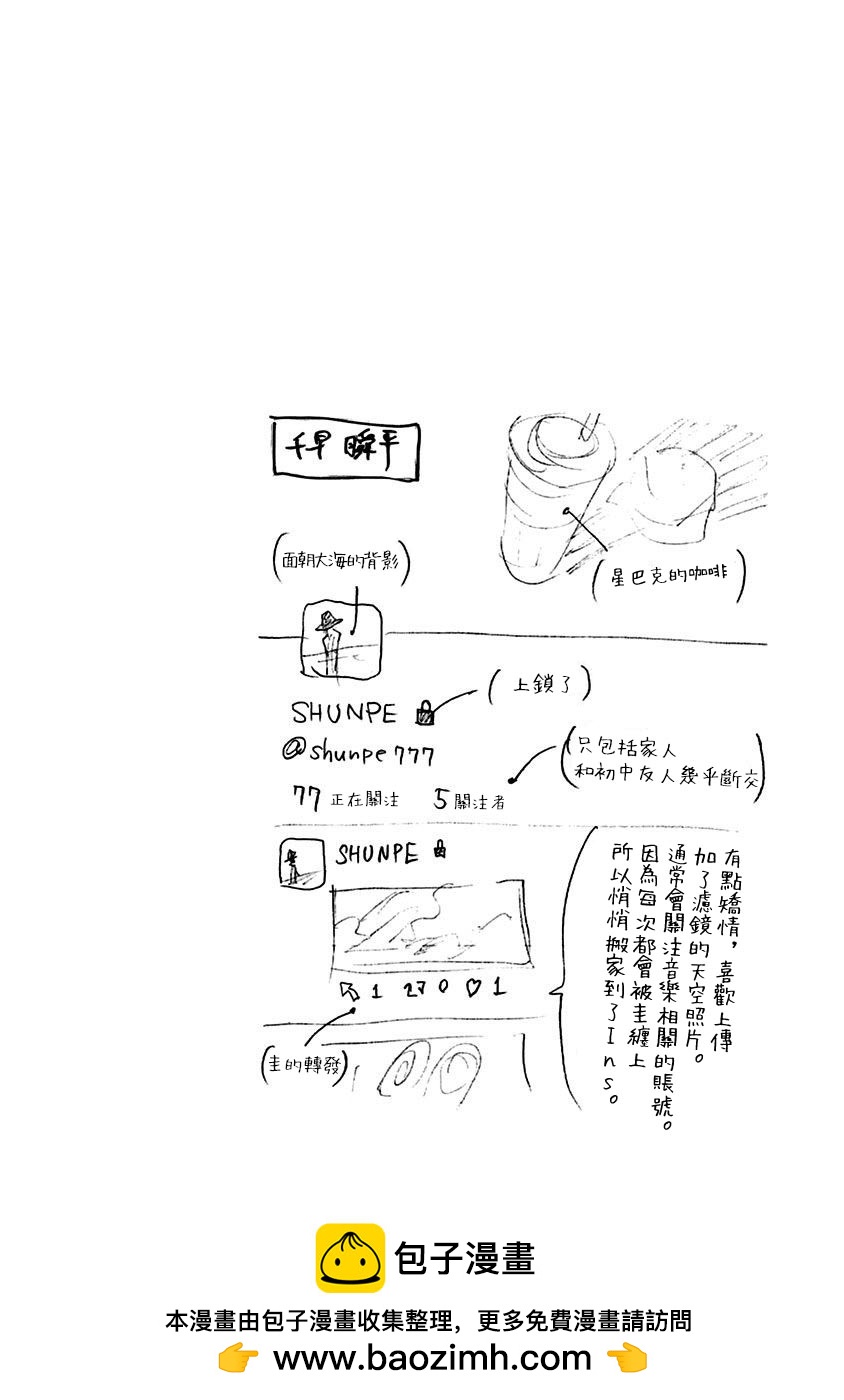 千早 瞬平
(星巴克的咖啡)
(面朝大海的背影)
(上鎖了)
SHUNPE
@shunpe777
(只包括家人
和初中友人幾乎斷交)
77 正在關注 5 關注者
SHUNPE
1 27 0 ♡ 1
(圭的轉發)
有點矯情，喜歡上傳
加了濾鏡的天空照片。
通常會關注音樂相關的賬號。
因為每次都會被圭纏上
所以悄悄搬家到了Ins。
包子漫畫
本漫畫由包子漫畫收集整理，更多免費漫畫請訪問
👉 www.baozimh.com 👈